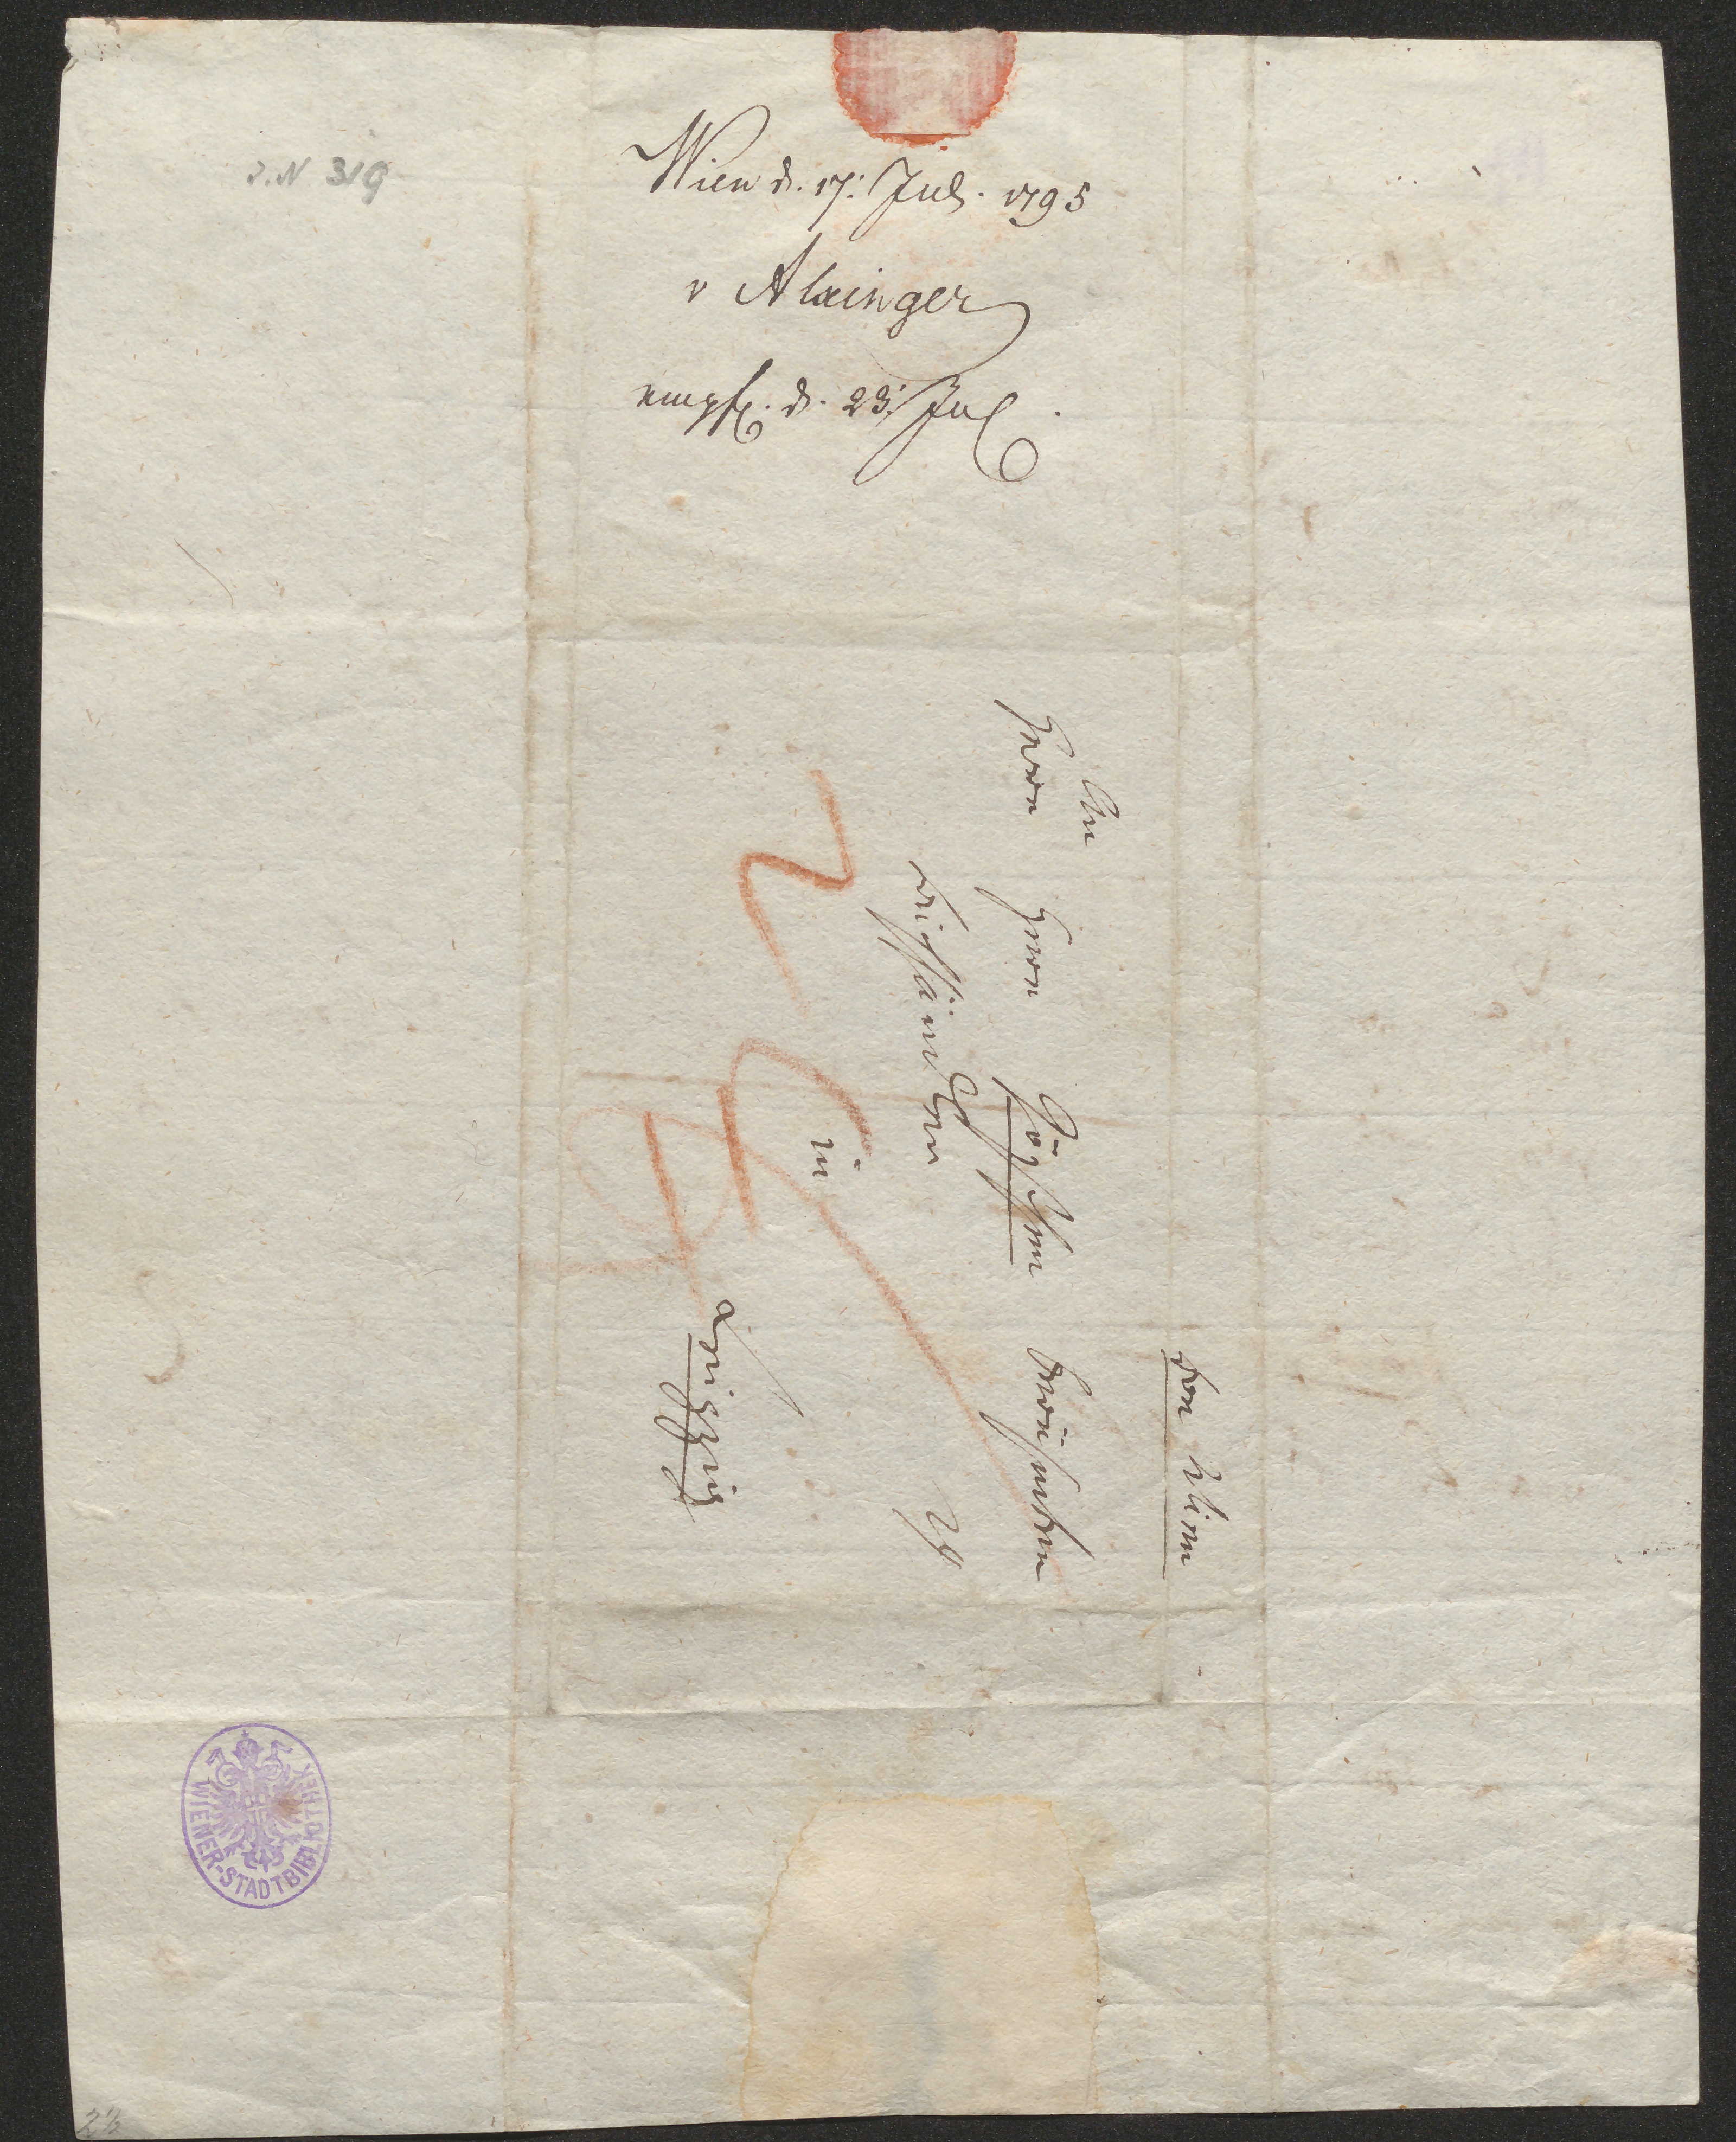 J.N 319
Wien d. 17. Jul. 1795
v Alxinger
empf. d. 23. Jul.
von Wien
An
Herrn Herrn Göschen berühmten
Buchhändler
in
Leipzig
WIENER-STADTBIBLIOTHEK